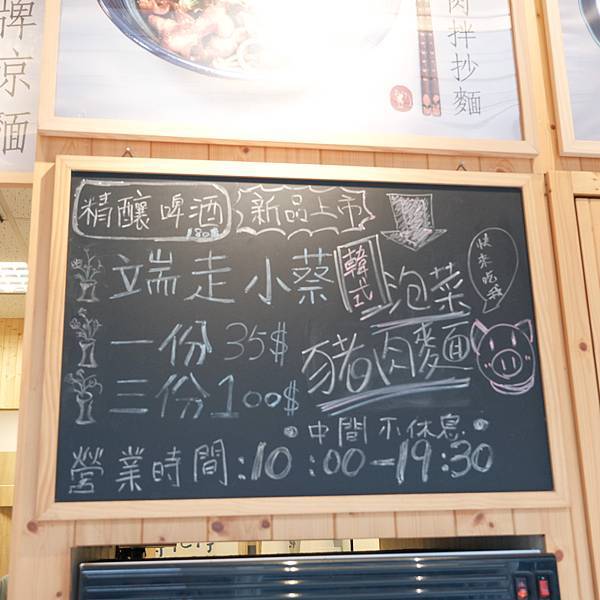 牌涼麵
肉拌抄麵
精釀啤酒
180元
新品上市
端走小蔡
一份 35$
三份 100$
韓式
泡菜
豬肉麵
快來吃我
•中間不休息•
營業時間:10:00-19:30